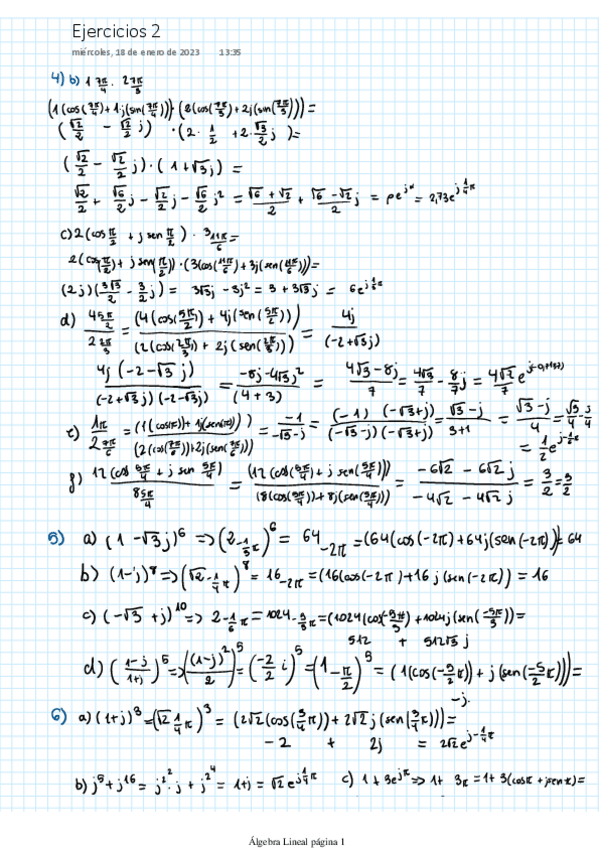 Ejercicios 2
miércoles, 18 de enero de 2023 13:35
4) b) 1 7π/4 · 2 7π/3
(1(cos(7π/4)+1·j(sin(7π/4)))·(2(cos(7π/3)+2j(sin(7π/3)))=
(√2/2 - √2/2 j) ·(2· 1/2 +2·√3/2 j)=
(√2/2 - √2/2 j)·(1+√3j) =
√2/2 + √6/2 j - √2/2 j - √6/2 j² = √6+√2/2 + √6-√2/2 j = ρe^jα = 2,73e^j1/4π
c) 2(cos π/2 + j sen π/2) · 3 11π/6 =
2(cos(π/2)+ j sen(π/2))·(3(cos(11π/6)+3j(sen(11π/6)))=
(2j)(3√3/2 - 3/2 j) = 3√3j - 3j² = 3 + 3√3j = 6e^j1/3π
d) 4 5π/2 / 2 2π/3 = (4(cos(5π/2))+4j(sen(5π/2))) / (2(cos(2π/3)) + 2j(sen(2π/3))) = 4j / (-2+√3j)
4j(-2-√3j) / (-2+√3j)(-2-√3j) = -8j-4√3j² / (4+3) = 4√3-8j / 7 = 4√3/7 - 8/7 j = 4√2/7 e^j
e) 1π / 2 7π/6 = (1(cos(π))+1j(sen(π))) / (2(cos(7π/6))+2j(sen(7π/6))) = -1 / -√3-j = (-1)(-√3+j) / (-√3-j)(-√3+j) = √3-j / 3+1 = √3-j / 4 = √3/4 - j/4
= 1/2 e^j-1/6π
f) 12(cos 5π/4 + j sen 5π/4) / 8 5π/4 = (12(cos(5π/4)+j sen(5π/4))) / (8(cos(5π/4))+8j(sen(5π/4))) = -6√2 - 6√2j / -4√2 - 4√2j = 3/2 = 3/2
5) a) (1-√3j)^6 => (2 -1/3π)^6 = 64 -2π = (64(cos(-2π)+64j(sen(-2π))= 64
b) (1-j)^8 => (√2 -1/4π)^8 = 16 -2π = (16(cos(-2π)+16j(sen(-2π)) = 16
c) (-√3 + j)^10 => 2 -1/6π = 1024 -5/3π = (1024(cos(-5π/3)+1024j(sen(-5π/3))=
512 + 512√3j
d) (1-j/1+j)^5 => ((1-j)²/2)^5 = (-2/2 i)^5 = (1 -π/2)^5 = (1(cos(-5/2π))+j(sen(-5/2π)))=
-j.
6) a) (1+j)^3 = (√2 1/4π)^3 = (2√2(cos(3/4π))+2√2j(sen(3/4π))=
-2 + 2j = 2√2e^j-1/4π
b) j^5+j^16 = j^2^2·j + j^2^4 = 1+j = √2e^j1/4π c) 1+3e^jπ => 1+ 3π = 1+3(cosπ+jsenπ)=
Álgebra Lineal página 1